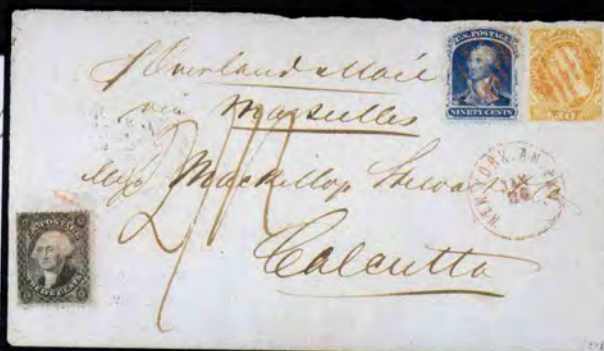 Overland Mail
via Marseilles
Mackillop Stewart & Co
Calcutta
U.S. POSTAGE
NINETY CENTS
30
NEW YORK AM. PKT.
U.S. POSTAGE
TWELVE CENTS